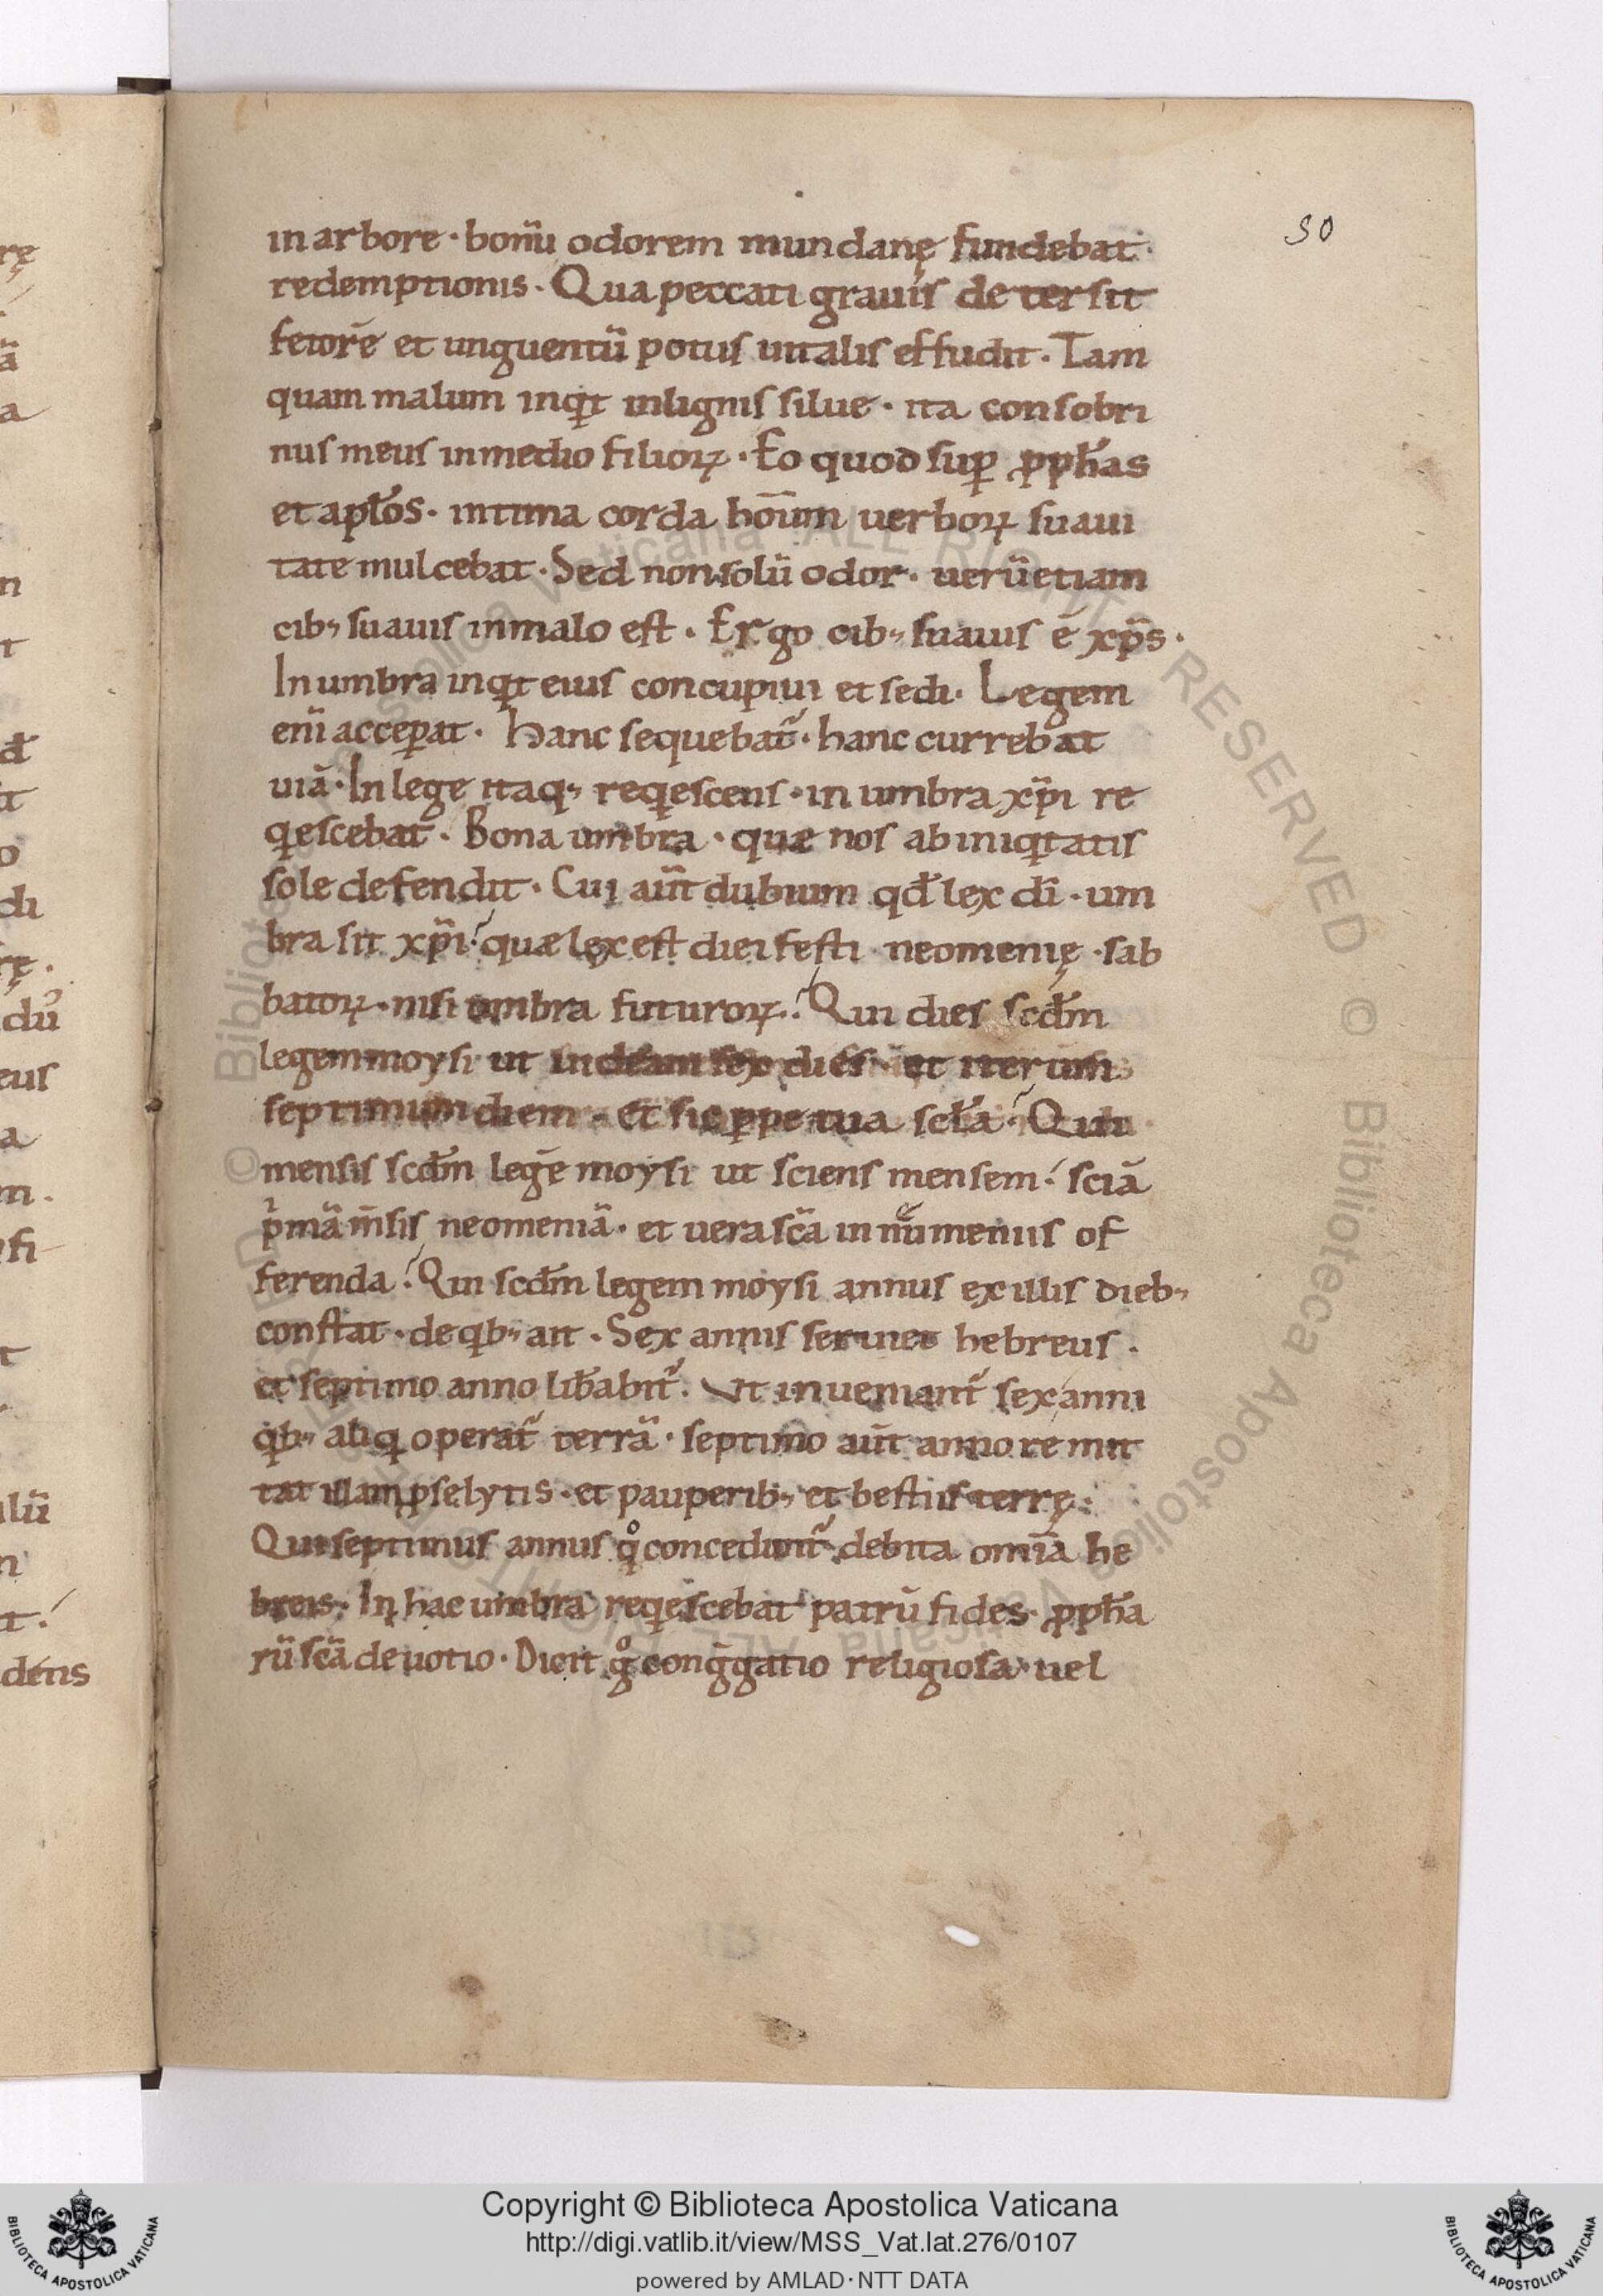 50
in arbore · bonũ odorem mundanę fundebat ·
redemptionis · Qua peccati grauis de tersit
fetorẽ et unguentũ potus uitalis effudit · Tam
quam malum inqͥt in lignis silue · ita consobri
nus meus in medio filioꝝ · Eo quod suꝑ ꝓph̃as
et apl̃os · intima corda hoĩum uerboꝝ suaui
tate mulcebat · Sed non solũ odor · uerũ etiam
cibꝰ suauis in malo est · Ergo cibꝰ suauis ẽ xp̃s ·
In umbra inqͥt eius concupiui et sedi · Legem
eni᷈ acceꝑat · Hanc sequebat᷈ · hanc currebat
uiã · In lege itaq; reqͥescens · in umbra xp̃i re
qͥescebat · Bona umbra · quæ nos ab iniqͥtatis
sole defendit · Cui aũt dubium qđ lex dĩ · um
bra sit xp̃i? quæ lex est diei festi neomenię · sab
batoꝝ · nisi umbra futuroꝝ? Qui dies scđm
legem moysi ut sex dies et iterum
septimum diem · et sic ꝑpetua Qui
mensis scđm legẽ moysi ut sciens mensem? sciã
pͥmã m̃sis neomeniã · et uera sc̃a in nũmeniis of
ferenda? Qui scđm legem moysi annus ex illis dieb;
constat · de qͥb; ait · Sex annis seruiet hebreus ·
et septimo anno lib̃abit᷈ · Ut inueniant᷈ sex anni
qͥb; aliqͥ operat᷈ terrã · septimo aũt anno remit
tat illam ꝓselytis · et pauperib; et bestiis terrę ·
Qui septimus annus qͦ concedunt᷈ debita omĩa he
breis · In hac umbra reqͥescebat patrũ fides · ꝓph̃a
rũ sc̃a deuotio · Dicit gͦ cong̃gatio religiosa · uel
rę
ã
a
n
t
đ
o
di
rę ·
dũ
eus
a
m ·
fi
t
lũ
n
t?
© Biblioteca Apostolica Vaticana ALL RIGHTS RESERVED © Biblioteca Apostolica Vaticana ALL RIGHTS RESERVED
Copyright © Biblioteca Apostolica Vaticana
http://digi.vatlib.it/view/MSS_Vat.lat.276/0107
powered by AMLAD·NTT DATA
BIBLIOTECA APOSTOLICA VATICANA
BIBLIOTECA APOSTOLICA VATICANA